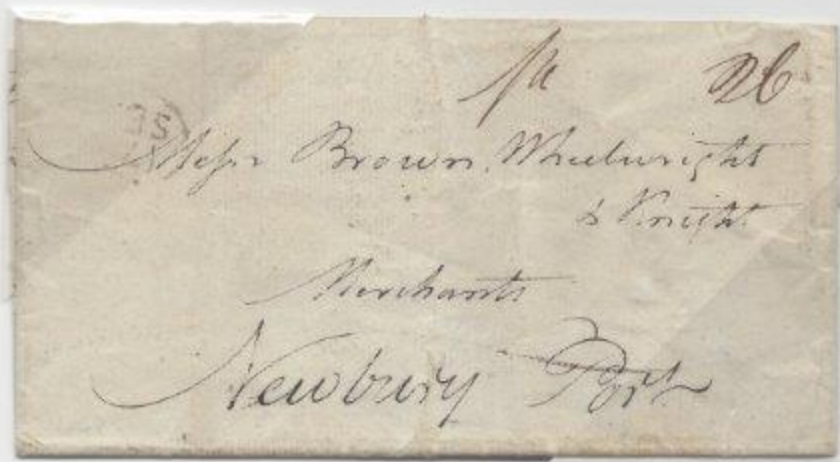 26
Messr Brown, Wheelwright
& Knight
Merchants
Newbury Port